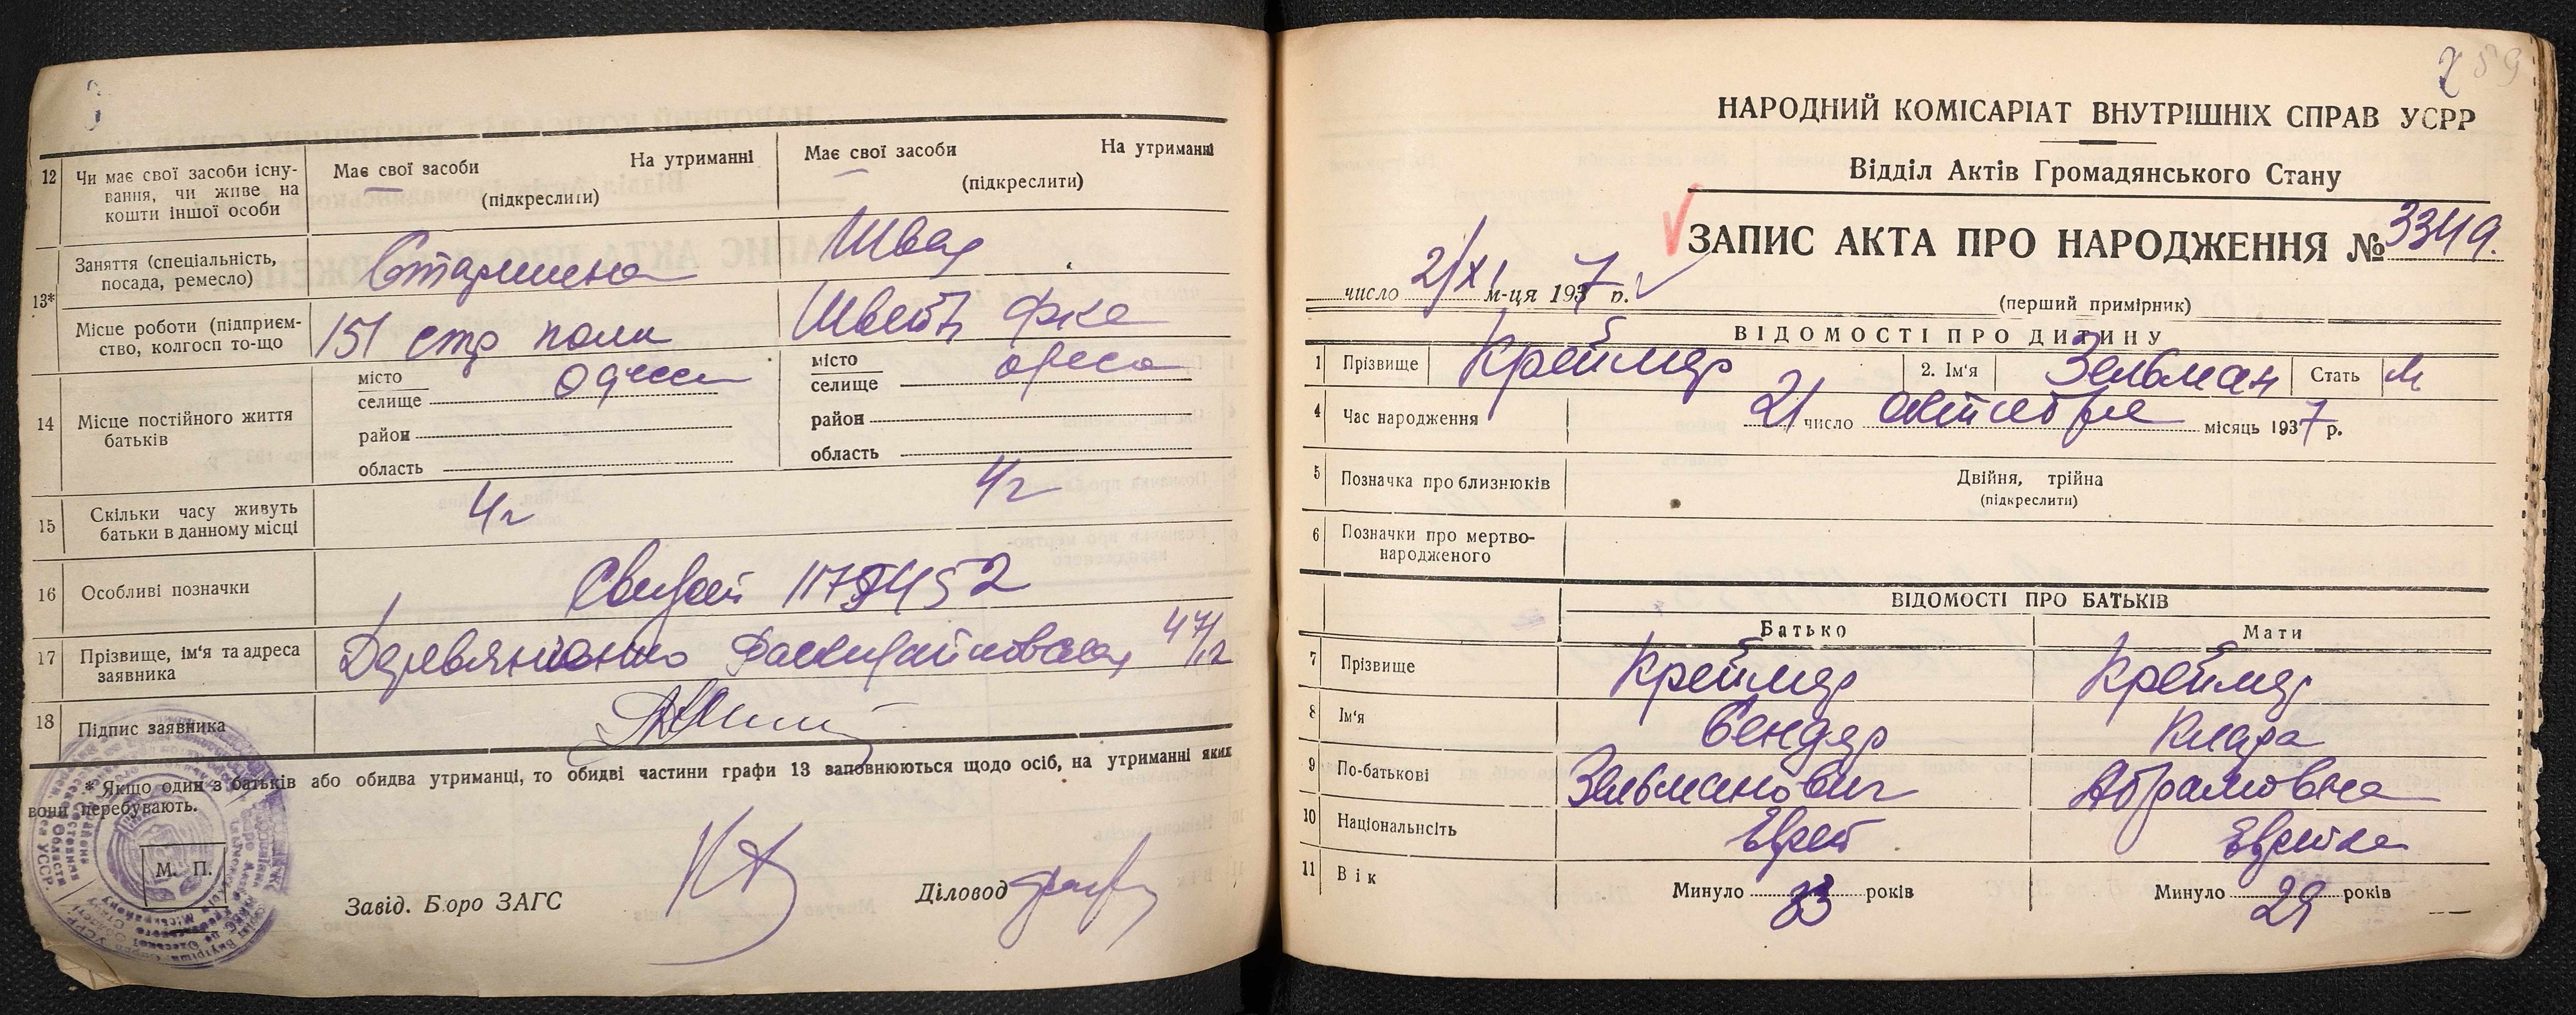 12 Чи має свої засоби існу-
вання, чи живе на
кошти іншої особи
Має свої засоби На утриманні
(підкреслити)
Має свої засоби На утриманні
(підкреслити)
13*
Заняття (спеціальність,
посада, ремесло)
Старшина
Швея
Місце роботи (підприєм-
ство, колгосп то-що
151 стр полк
Швейн ф-ка
14 Місце постійного життя
батьків
місто
селище Одесса
район
область
місто
селище Одеса
район
область
15 Скільки часу живуть
батьки в данному місці
4 г
4 г
16 Особливі позначки
17 Прізвище, ім'я та адреса
заявника
47/12
18 Підпис заявника
* Якщо один з батьків або обидва утриманці, то обидві частини графи 13 заповнюються щодо осіб, на утриманні яких
вони перебувають.
М. П.
Завід. Бюро ЗАГС
Діловод
НАРОДНИЙ КОМІСАРІАТ ВНУТРІШНІХ СПРАВ УСРР
Відділ Актів Громадянського Стану
ЗАПИС АКТА ПРО НАРОДЖЕННЯ № 3349.
число 2/XI м-ця 1937 р.
(перший примірник)
ВІДОМОСТІ ПРО ДИТИНУ
1 Прізвище Креймер 2. Ім'я Зельман Стать М
4 Час народження 21 число октября місяць 1937 р.
5 Позначка про близнюків Двійня, трійна
(підкреслити)
6 Позначки про мертво-
народженого
ВІДОМОСТІ ПРО БАТЬКІВ
Батько Мати
7 Прізвище Креймер Креймер
8 Ім'я Сендер Клара
9 По-батькові Зельманович Абрамовна
10 Національність Еврей Еврейка
11 Вік Минуло 33 років Минуло 29 років